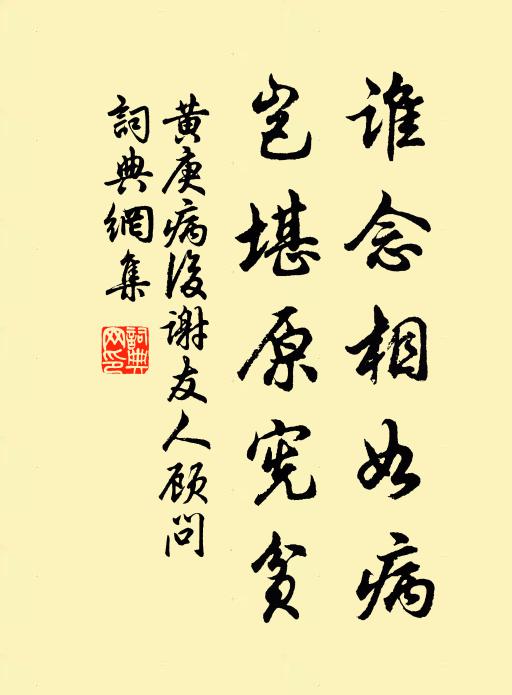 谁念相如病
岂堪原宪贫
黄庚病後谢友人顾问
词典網集
詞典
网印